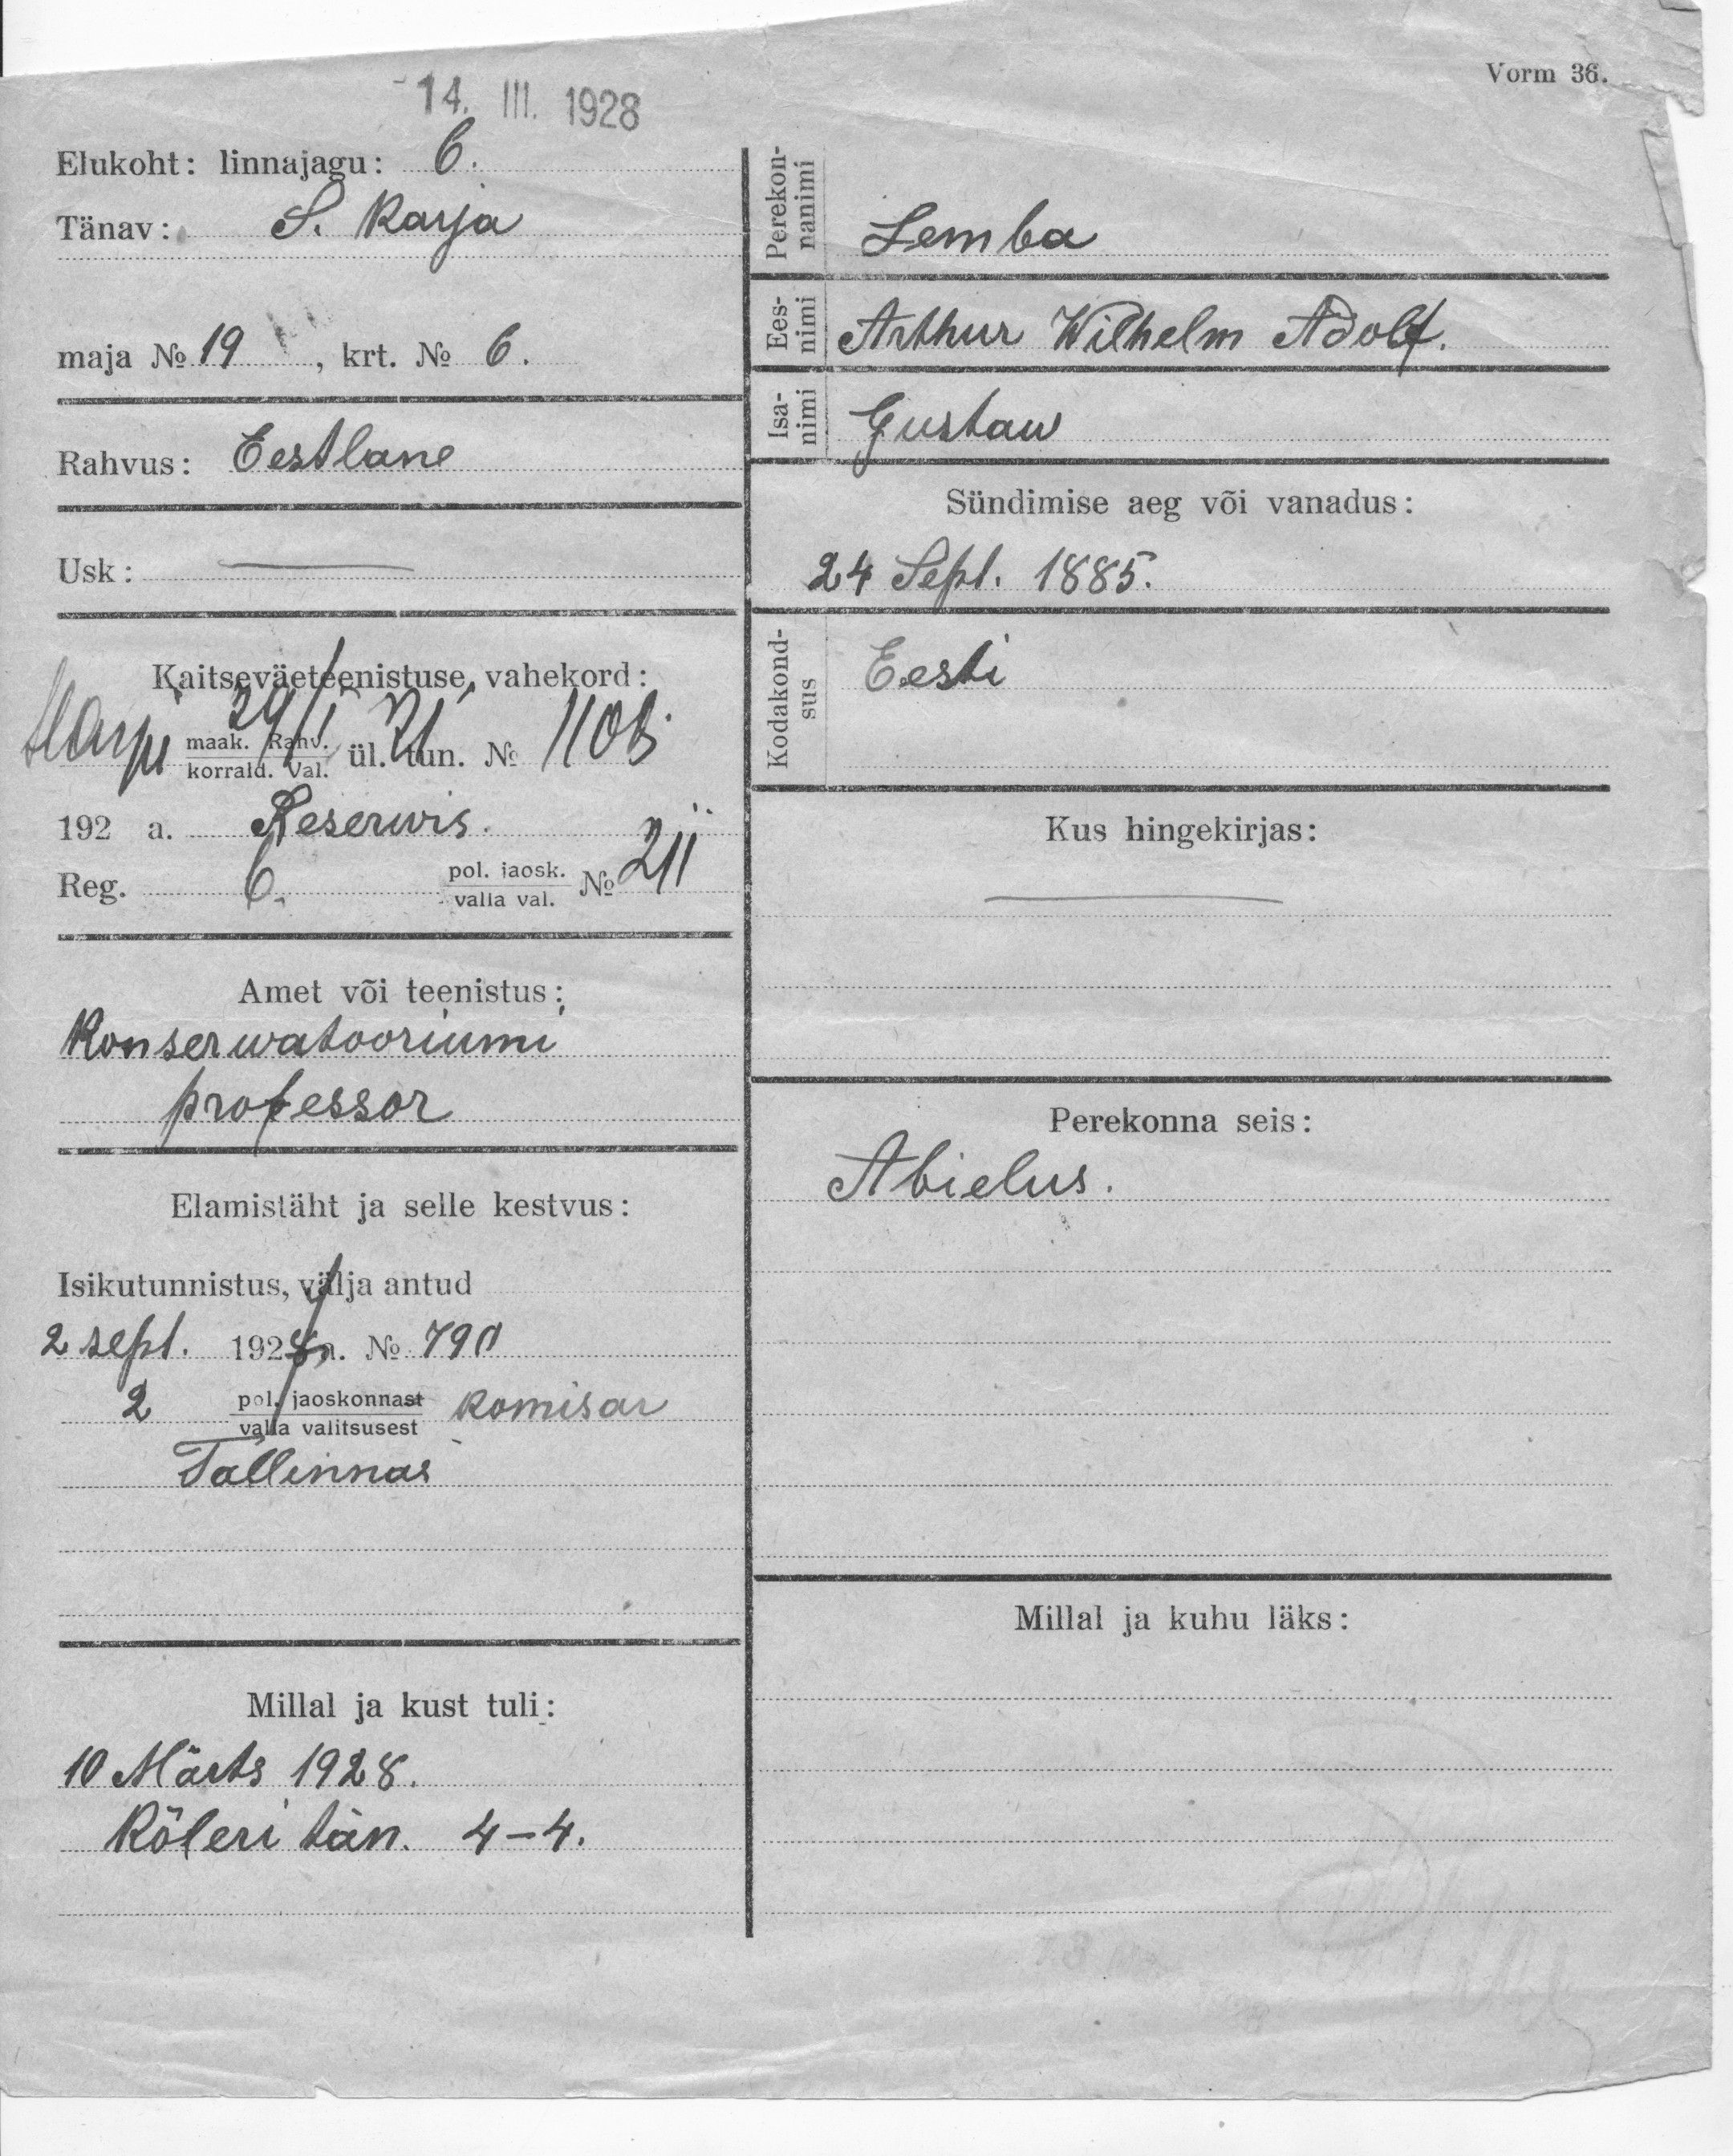 14. III. 1928
Vorm 36.
Elukoht: linnajagu: 6.
Tänav: S. Karja
maja № 19 , krt. № 6.
Rahvus: Eestlane
Usk: —
Kaitseväeteenistuse vahekord:
Harju maak. Rahv. ül. tun. №
korrald. Val.
192 a. Reserwis.
Reg. 6. pol. jaosk. № 211
valla val.
Amet või teenistus:
Konserwatooriumi
professor
Elamistäht ja selle kestvus:
Isikutunnistus, välja antud
2 sept. 192 a. № 790
2 pol. jaoskonnast komisar
valla valitsusest
Tallinnas
Millal ja kust tuli:
10 Märts 1928.
Köleri tän. 4-4.
Perekon-
nanimi
Lemba
Ees-
nimi
Arthur Wilhelm Adolf.
Isa-
nimi
Gustaw
Sündimise aeg või vanadus:
24 Sept. 1885.
Kodakond-
sus
Eesti
Kus hingekirjas:
—
Perekonna seis:
Abielus.
Millal ja kuhu läks: